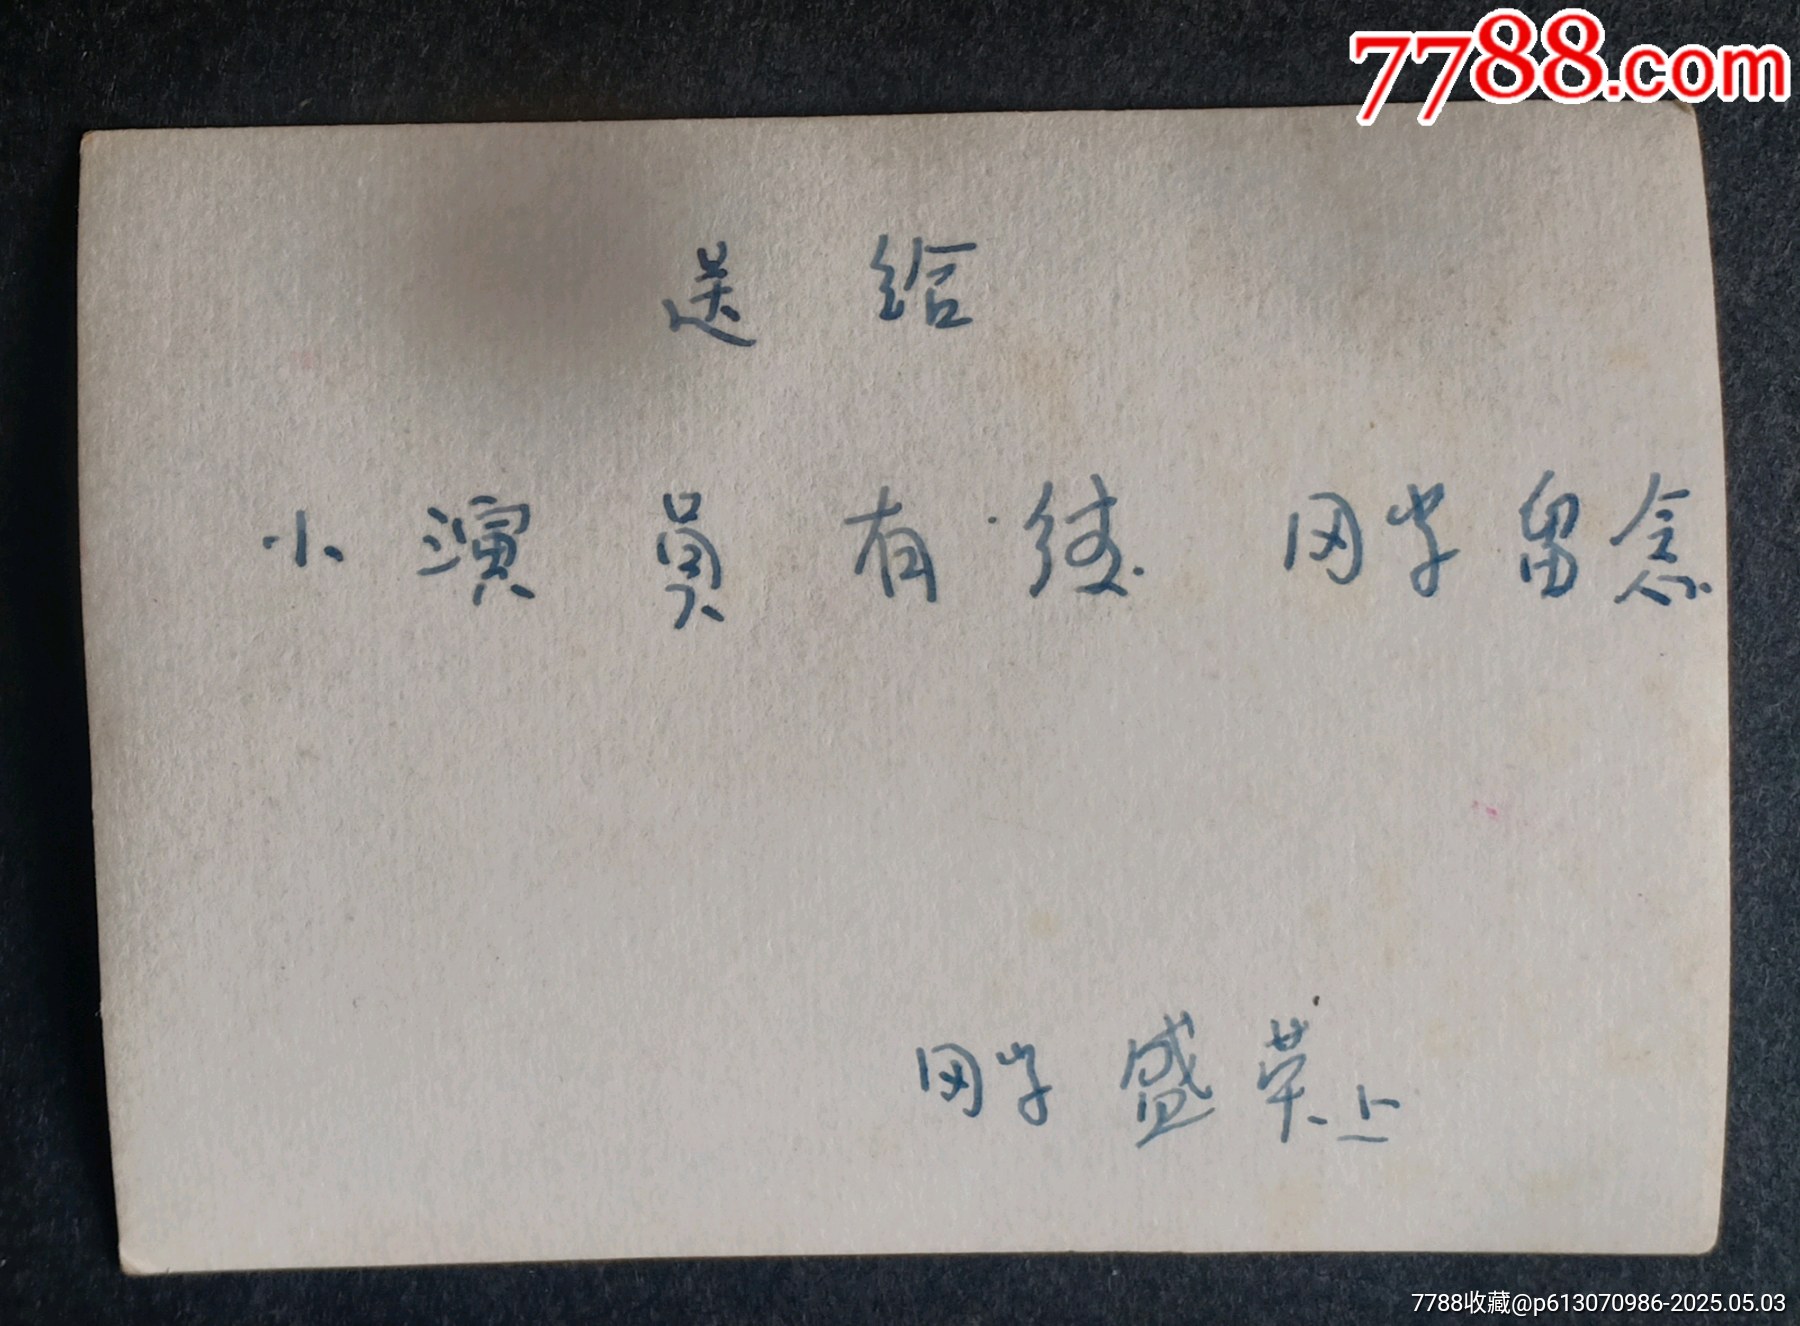 7788.com
送给
小演员有 同学留念
同学盛荣上
7788收藏@p613070986-2025.05.03